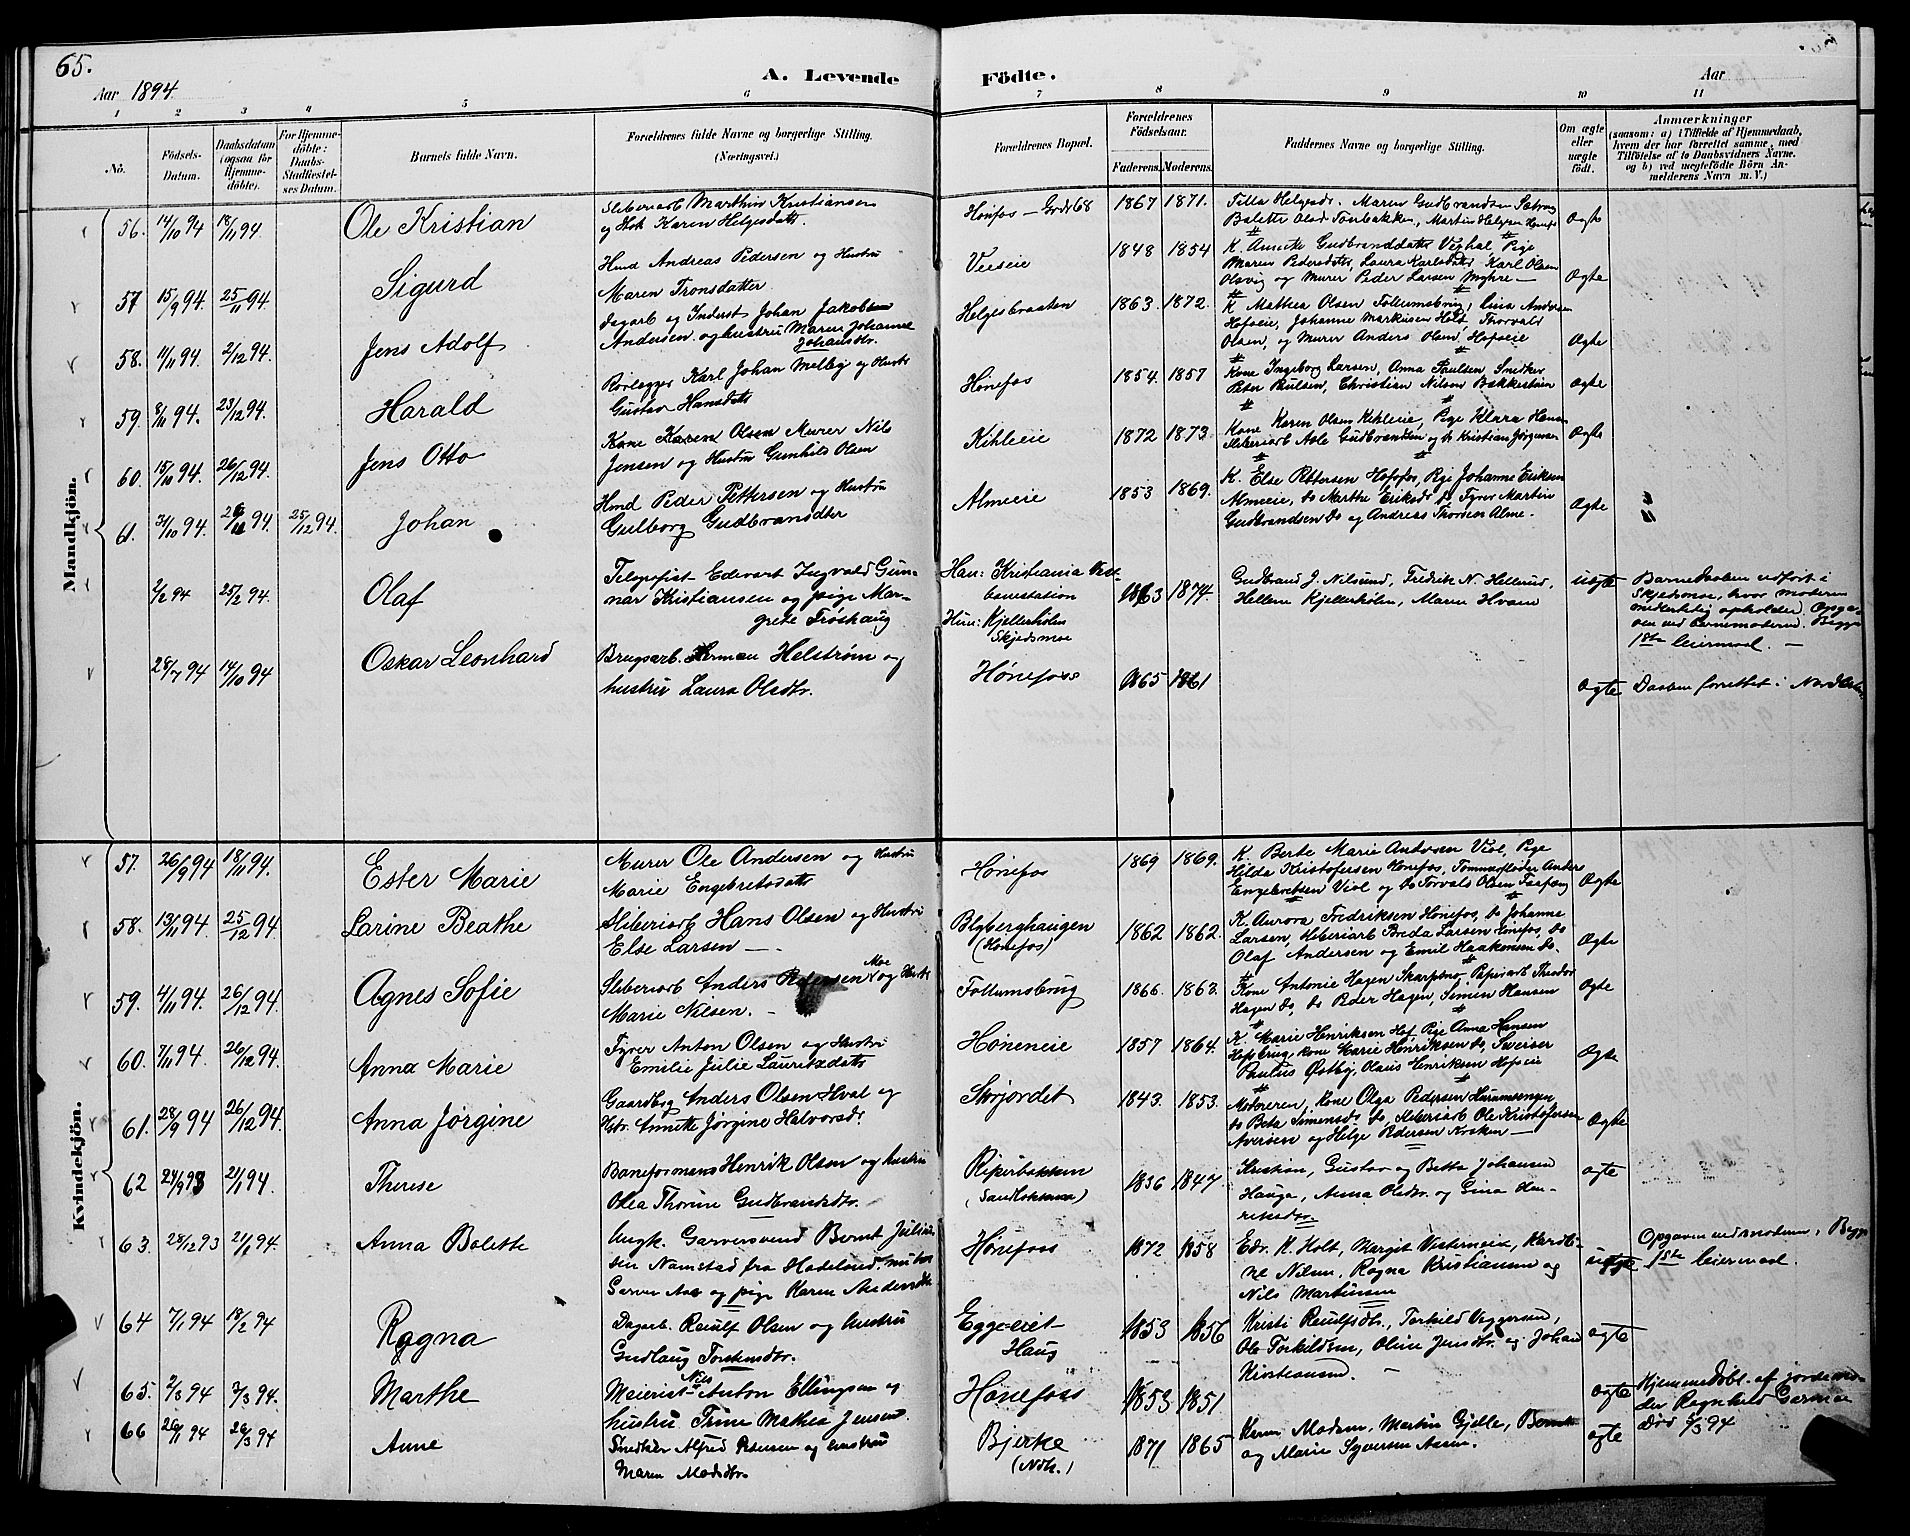 65.
A. Levende
Födte.
Aar 1894
Aar
1 2 3 4 5 6 7 8 9 10 11
No.
Födsels-
Datum.
Daabsdatum
(ogsaa for
Hjemme-
döbte).
For Hjemme-
döbte:
Daabs-
Stadfæstel-
ses Datum.
Barnets fulde Navn.
Forældrenes fulde Navne og borgerlige Stilling.
(Næringsvei.)
Forældrenes Bopæl.
Forældrenes
Födselsaar.
Faderens. Moderens.
Faddernes Navne og borgerlige Stilling.
Om ægte
eller
uægte
födt.
Anmærkninger
(saasom: a) i Tilfælde af Hjemmedaab,
hvem der har forrettet samme, med
Tilföielse af to Daabsvidners Navne.
og b) ved uægtefödte Börn An-
melderens Navn m. V.)
Mandkjön.
56. 14/10 94 18/11 94 Ole Kristian
Sliberiarb Marthin Kristiansen
og Karen Helgesdatt.
Hönefos — 1867 1871.
Ægte
57 15/9 94 25/11 94 Sigurd
Hmd Andreas Pedersen og Hustru
Maren Tronsdatter
Veiseie 1848 1854
Maren Pedersdatter, Laura Karlsdatter Karl Olsen
og Murer Peder Larsen Myhre —
Ægte
58. 11/11 94. 2/12 94. Jens Adolf
Dagarb og Inderst Johan Jakobsen
Andersen og hustru Maren Johanne
Johansdtr.
Helgesbraaten 1863. 1872.
K. Mathea Olsen Follumsbrug,
Hofseie, Johanne Markusen Thorvald
Olsen, og Murer Anders Olsen Hofseie
Ægte
59. 8/11 94. 23/12 94. Harald
Rörlægger Karl Johan og Hustr
Gustav Hansdatt
Hönefos 1854. 1857
Kone Ingeborg Larsen, Anna Paulsen Snedker
Christian Nilsen Bakkestuen
Ægte
60. 15/10 94. 26/12 94. Jens Otto
Kone Karen Olsen Murer Nils
Jensen og Hustru Gunhild Olsen
Kihleie 1872 1873.
Kone Karen Olsen Kihleie, Pige Klara Hansen
Sliberiarb Asle Gudbrandsen og do Kristian Jörgensen
Ægte
61. 31/10 94. 94. 25/12 94. Johan
Hmd Peder Pettersen og Hustru
Gulborg Gudbransdter
Almeie 1853 1869.
K. Else Pettersen Hofsfos, Pige Johanne Eriksen
Almeie, do Marthe Eriksd do Fyrer Martin
Gudbrandsen do og Andreas Thorsen Alme.
Ægte
2/2 94 25/2 94. Olaf
Telegrafist Edevart Ingvald Gun-
nar Kristiansen og pige Mar-
grete Fröshaug
Han: Kristiania Vest-
banestation
Hun: Kjellerholen
Skjedsmoe
1863 1874.
Gudbrand J. Nilsund, Fredrik N. Hellerud,
Hellene Kjellerholen, Maren Hvam
uægte
Barnedaaben udfört i
Skjedsmoe, hvor moderen
midlertidig opholder. Opga-
ven ved Barnemoderen. Begges
1ste leiermaal. —
28/7 94 14/10 94 Oskar Leonhard
Brugsarb. Herman Helström og
hustru Laura Olsdtr.
Hönefoss 1865 1861
ægte Daaben forrettet i
Kvindekjön.
57. 26/9 94 18/11 94. Ester Marie
Murer Ole Andersen og Hustru
Marie Engebretsdatt
Hönefos 1869 1869.
K. Berte Marie Andersen Viol, Pige
Hilda Kristofersen Hönefos, Tömmerfloder Anders
Engebretsen Viol og do Torvald Olsen
Ægte
58. 13/11 94. 25/12 94. Larine Beathe
Sliberiarb Hans Olsen og Hustru
Else Larsen —
Blybergshaugen
(Hönefos)
1862 1862.
K. Aurora Fredriksen Hönefos, do Johanne
Larsen, Sliberiarb Breda Larsen Hönefos, do
Olaf Andersen og Emil Haakonsen do.
Ægte
59. 4/11 94. 26/12 94. Agnes Sofie
Sliberiarb Anders Pedersen Moe og Hustr
Marie Nilsen. —
Follumsbrug 1866. 1863.
Kone Antonie Hagen Skarpsno, Papirarb Theodor
Hagen do, do Peder Hagen, Simen Hansen
Ægte
60. 7/11 94. 26/12 94. Anna Marie
Fyrer Anton Olsen og Hustru
Emilie Julie Lauritzdatt
Höneneie 1857 1864.
K. Marie Henriksen Hof Pige Anna Hansen
Hofsbrug, kone Marie Henriksen do, Sveiser
Paulus Östby, Olaus Henriksen Hofseie
Ægte
61. 28/9 94 26/12 94. Anna Jörgine
Gaardbrg Anders Olsen Hval og
Hstr. Annette Jörgine Halvorsd.
Storjordet 1843. 1853.
Moderen, Kone Olga Pedersen
do Beta Simensd do, Sliberiarb Ole Kristofersen
Aversen og Helge Pedersen —
Ægte
62 24/9 93 21/1 94. Therese
Baneformand Henrik Olsen og hustru
Olea Thorine Gudbrandsdtr.
Riperbakken
1836 1847.
Kristian, Gustav og Betta Johansen
Hauga, Anna Olsdtr. og Gina Hen-
riksdtr.
ægte
63. 28/12 93 21/1 94. Anna Bolette
Ungk. Garversvend Bernt Julius-
sen Namstad fra Hadeland.
og pige Karen Andersdtr.
Hönefoss 1872 1858
Edv. K. Holt, Margit
Nilsen, Ragna Kristiansen og
Nils Martinsen
uægte
Opgaven ved moderen, Begges
1ste leiermaal.
64 7/1 94 18/2 94 Ragna
Dagarb. Paulf Olsen og hustru
Gudlaug Torstensdtr.
Eggeeiet
Haug
1853 1856
Kristi Paulfsdtr., Torkild Veggersen,
Ole Torkildsen, Oline Jensdtr. og Johan
Kristiansen. —
ægte
65. 2/3 94 7/3 94. Marthe
Meierist Nils Anton Ellingsen og
hustru Trine Mathea Jensen.
Hönefoss 1853 1851
ægte
Hjemmedöbt af jordemo-
der Ragnhild
Död 9/3 94
66 26/1 94 26/3 94 Anne
Snedker Alfred Pedersen og hustru
Maren Madsdtr.
Bjerke
(Ndh.)
1871 1865
Karen Madsen, Martin Gjelle, Bernt
og Marie Syversen Aasen.
ægte